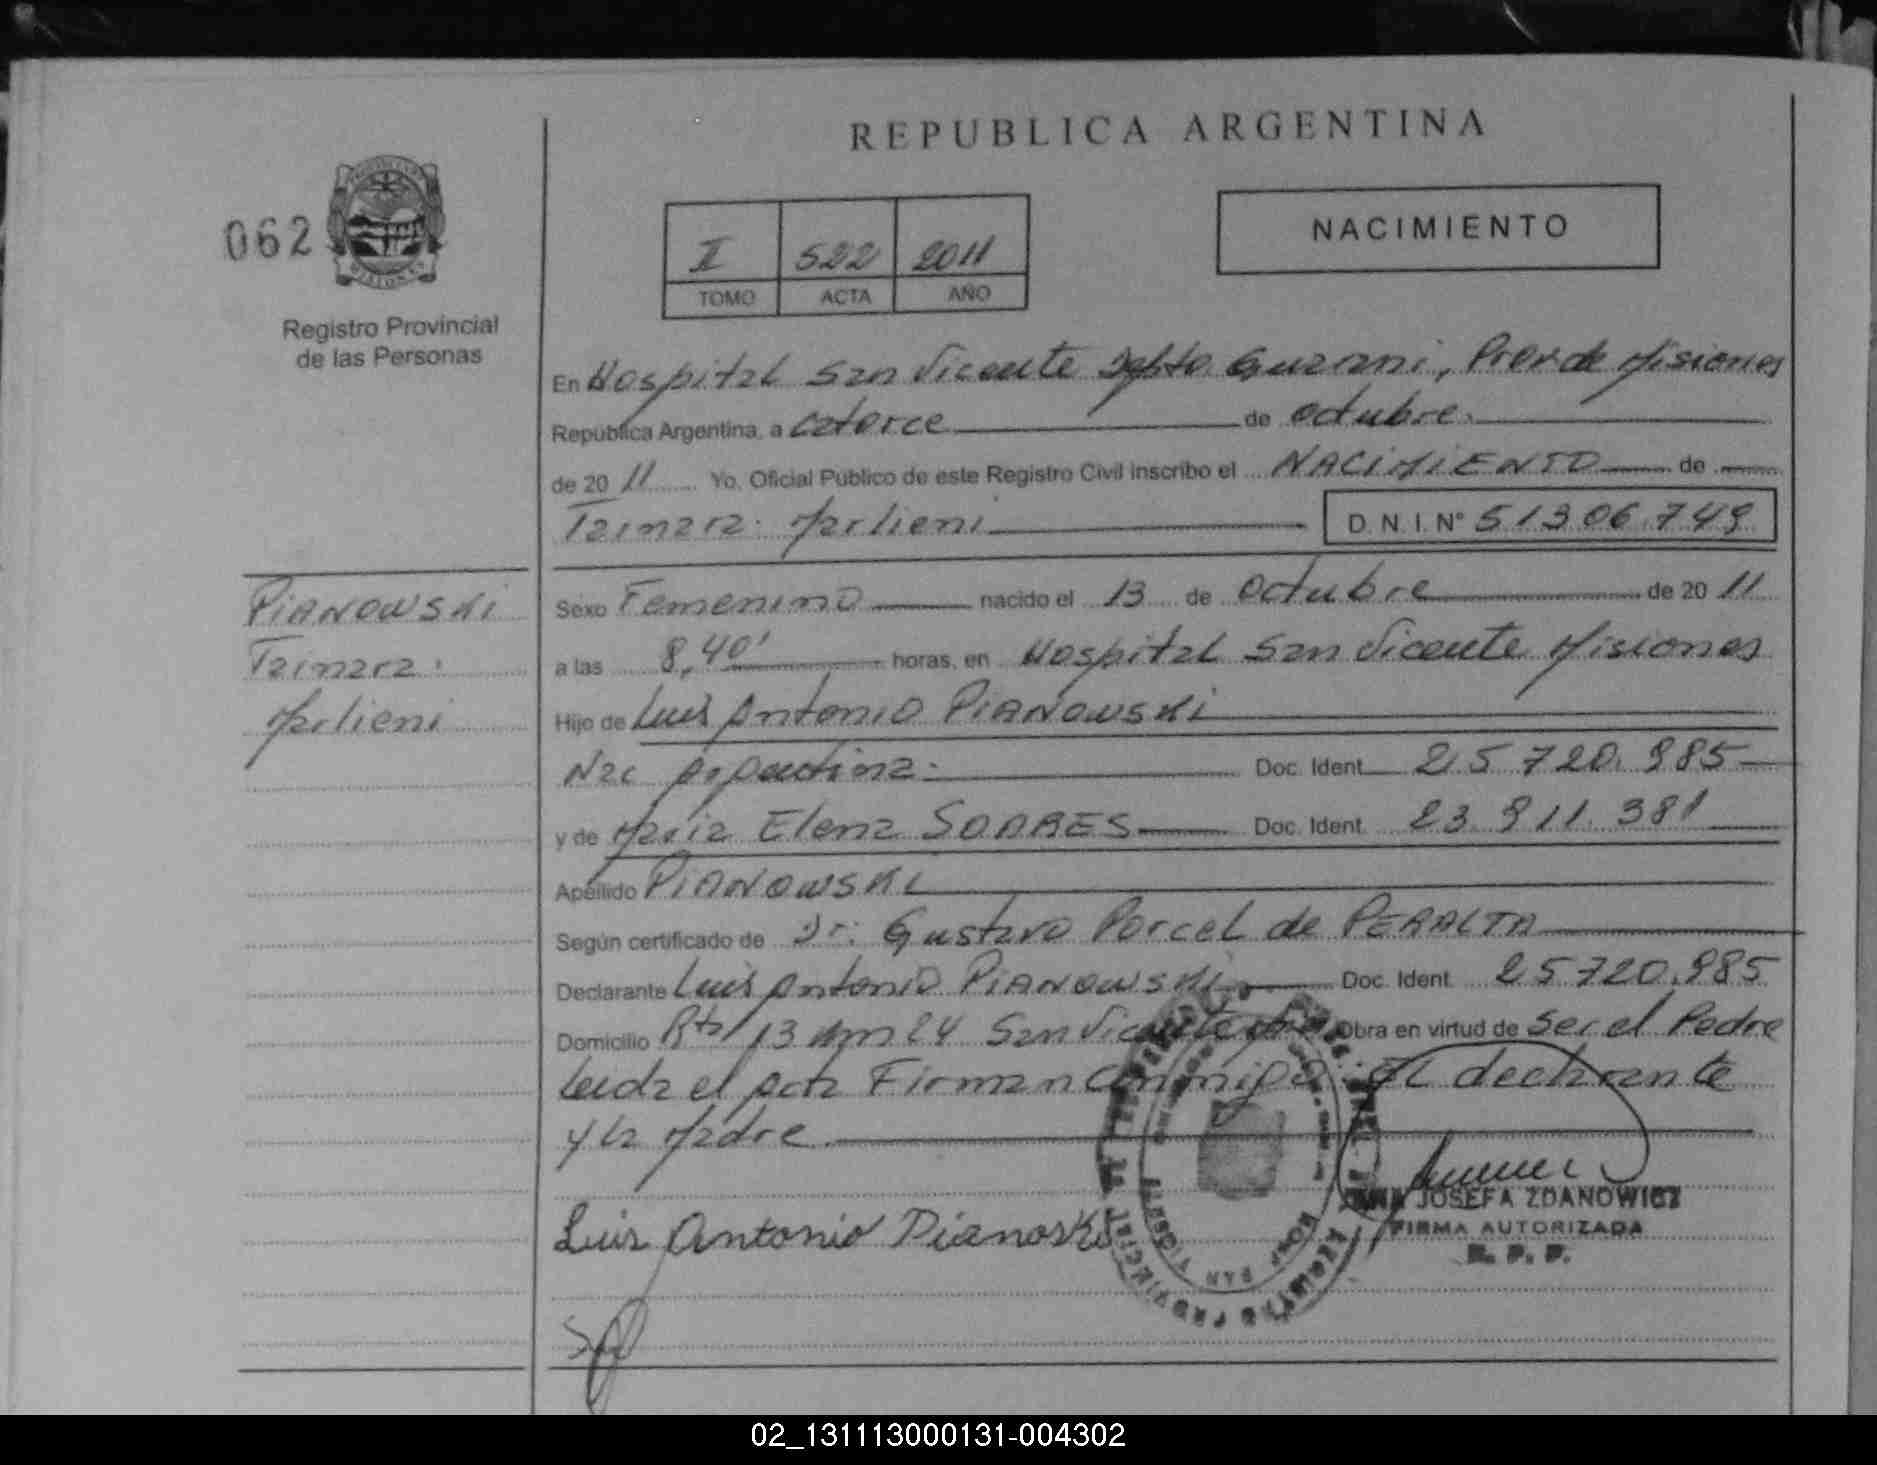 REPUBLICA ARGENTINA
062
Registro Provincial
de las Personas
II 522 2011
TOMO ACTA AÑO
NACIMIENTO
En Hospital San Vicente Dpto Guarani, Prov de Misiones
República Argentina, a catorce de octubre.
de 20 11 Yo, Oficial Público de este Registro Civil inscribo el NACIMIENTO de
Tainara Marlieni D. N. I. Nº 51306.749
PIANOWSKI
Tainara
Marlieni
Sexo Femenino nacido el 13 de Octubre de 20 11
a las 8,40' horas, en Hospital San Vicente Misiones
Hijo de Luis Antonio PIANOWSKI
Nac Argentina Doc. Ident. 25.720.985
y de Maria Elena SOARES Doc. Ident. 23.911.381
Apellido PIANOWSKI
Según certificado de Dr. Gustavo Porcel de PERALTA
Declarante Luis Antonio PIANOWSKI Doc. Ident. 25720.985
Domicilio Rta 13 Km 24 San Vicente Obra en virtud de Ser el Padre
Leida el Acta Firman Conmigo El declarante
y la Madre
Luis Antonio Pianoski
JOSEFA ZDANOWICZ
FIRMA AUTORIZADA
R. P. P.
02_131113000131-004302